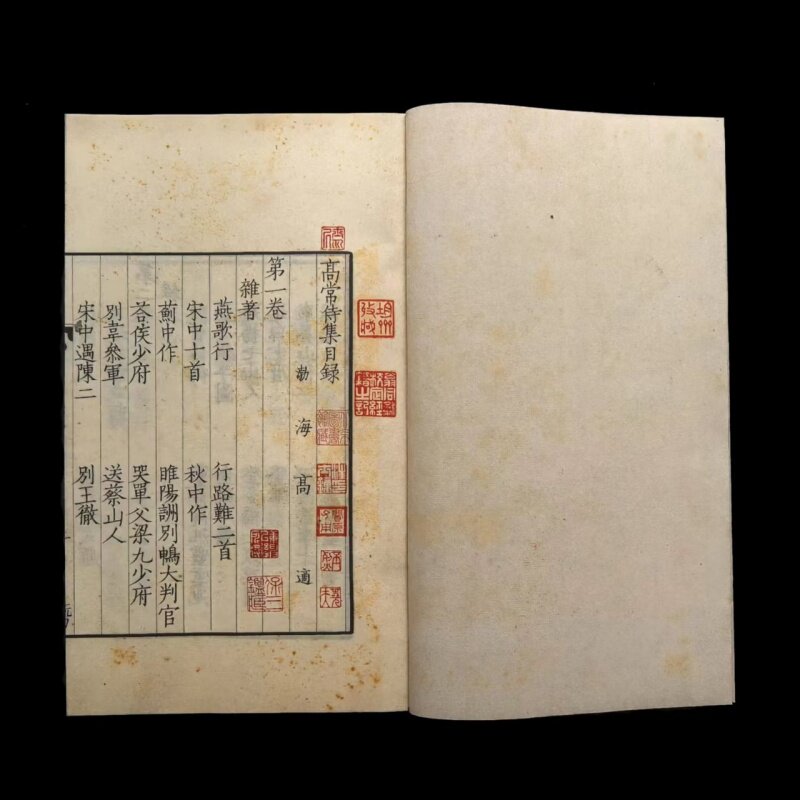 高常侍集目録
勃海高適
第一卷
雜著
燕歌行 行路難二首
宋中十首 秋中作
薊中作 睢陽詶別暢大判官
荅侯少府 哭單父梁九少府
別韋參軍 送蔡山人
宋中遇陳二 別王徹